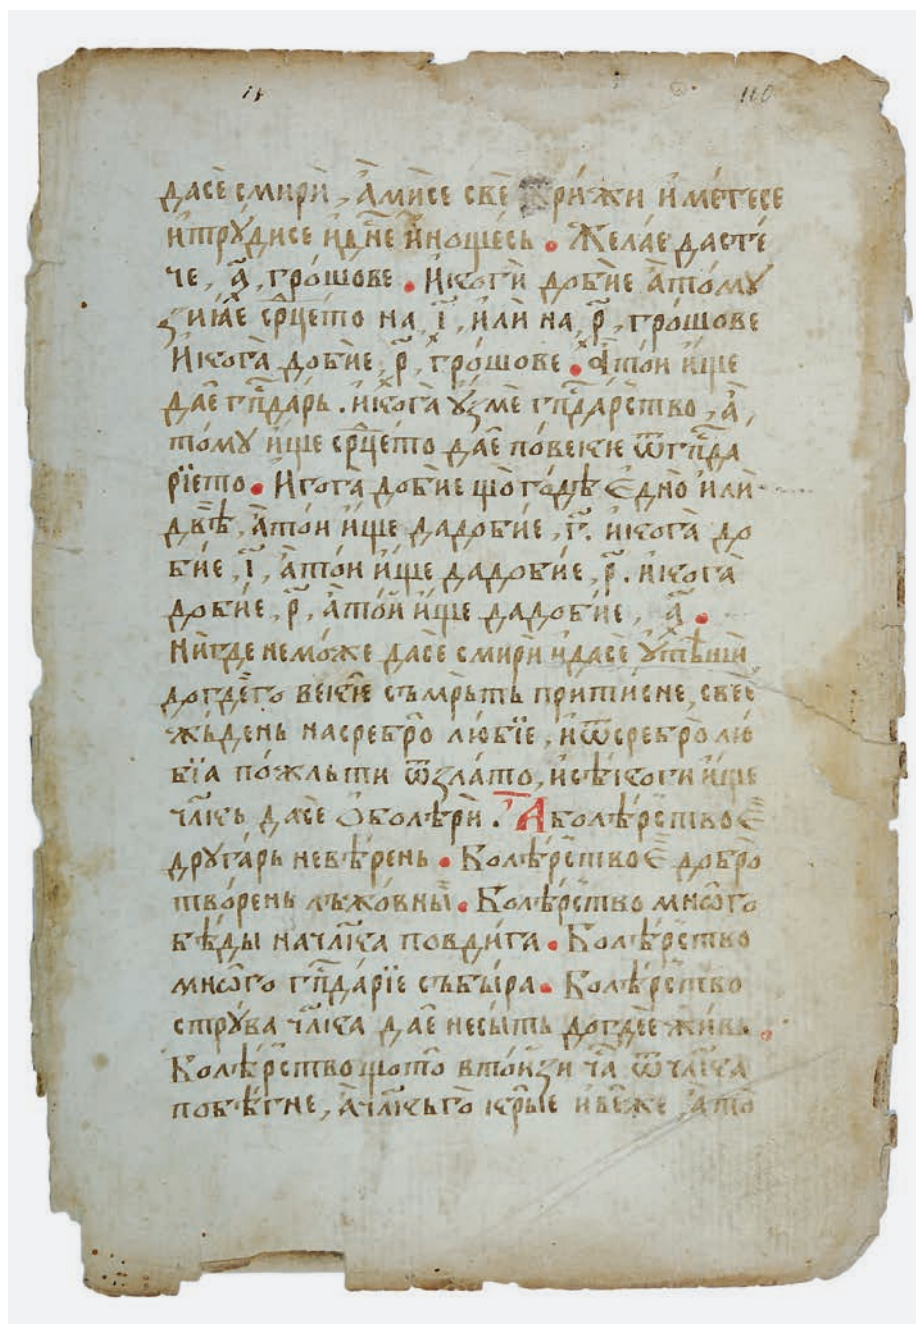 110
дасѐ смирѝ, а҆мисе свѐ грѝжи и҆ме́тесе
и҆трꙋ́дисе и҆дн҃е и҆ноще́сь. Жела́е дасте́
че, ҂а҃, гро́шове. И҆когѝ добі́е а҆то́мꙋ
ꙁи́ꙗе ср҃цето на, і҃, и҆лѝ на, р҃, гро́шове
И҆когà доби́е, р҃, гро́шове. а҆то́и и҆́ще
даѐ гп҃да́рь. и҆когà ꙋ҆зме̇̀ гп҃да́рство, а҆̀,
то́мꙋ и҆́ще ср҃це́то даѐ по́векие ѿгп҃да
рїето. И҆гогà доби́е щого́дѣ є҆днò и҆лѝ
двѣ̀, а҆то́и и҆́ще дадоби́е, г҃. и҆когà до
би́е, і҃, а҆то́и и҆́ще дадоби́е, р҃. и҆когà
доби́е, р҃, а҆то́й и҆́ще дадоби́е, ҂а҃.
Нѝгде немо́же дасѐ смирѝ и҆дасѐ ꙋ҆тѣшѝ
догдѐго векіе съмрьть притисне, свес
жьдень насребро̀ лю́бїе, и҆ѿсребро̀ лю́
бїа по́жльти ѿзла́то, и҆сѣ́коги и҆́ще
чл҃кь дасѐ ѡ҆болѣрѝ. А҆болѣ́рство є҆̀
дрꙋга́рь невѣ́рень. Болѣ́рство є҆̀ добро̀
тво́рень лъжо́вный. Болѣ́рство мно́го
бѣ́ды начл҃ка повди́га. Болѣ́рство
мно́го гп҃да́рїе събы́ра. Болѣ́рство
стрꙋ́ва чл҃ка даѐ несы́ть догдѐе живь.
Болѣ́рство щото̀ втои́зи ча̀ ѿчл҃ка
побѣ́гне, а҆чл҃кьго̀ кры́е и҆ве́же, а҆то̀